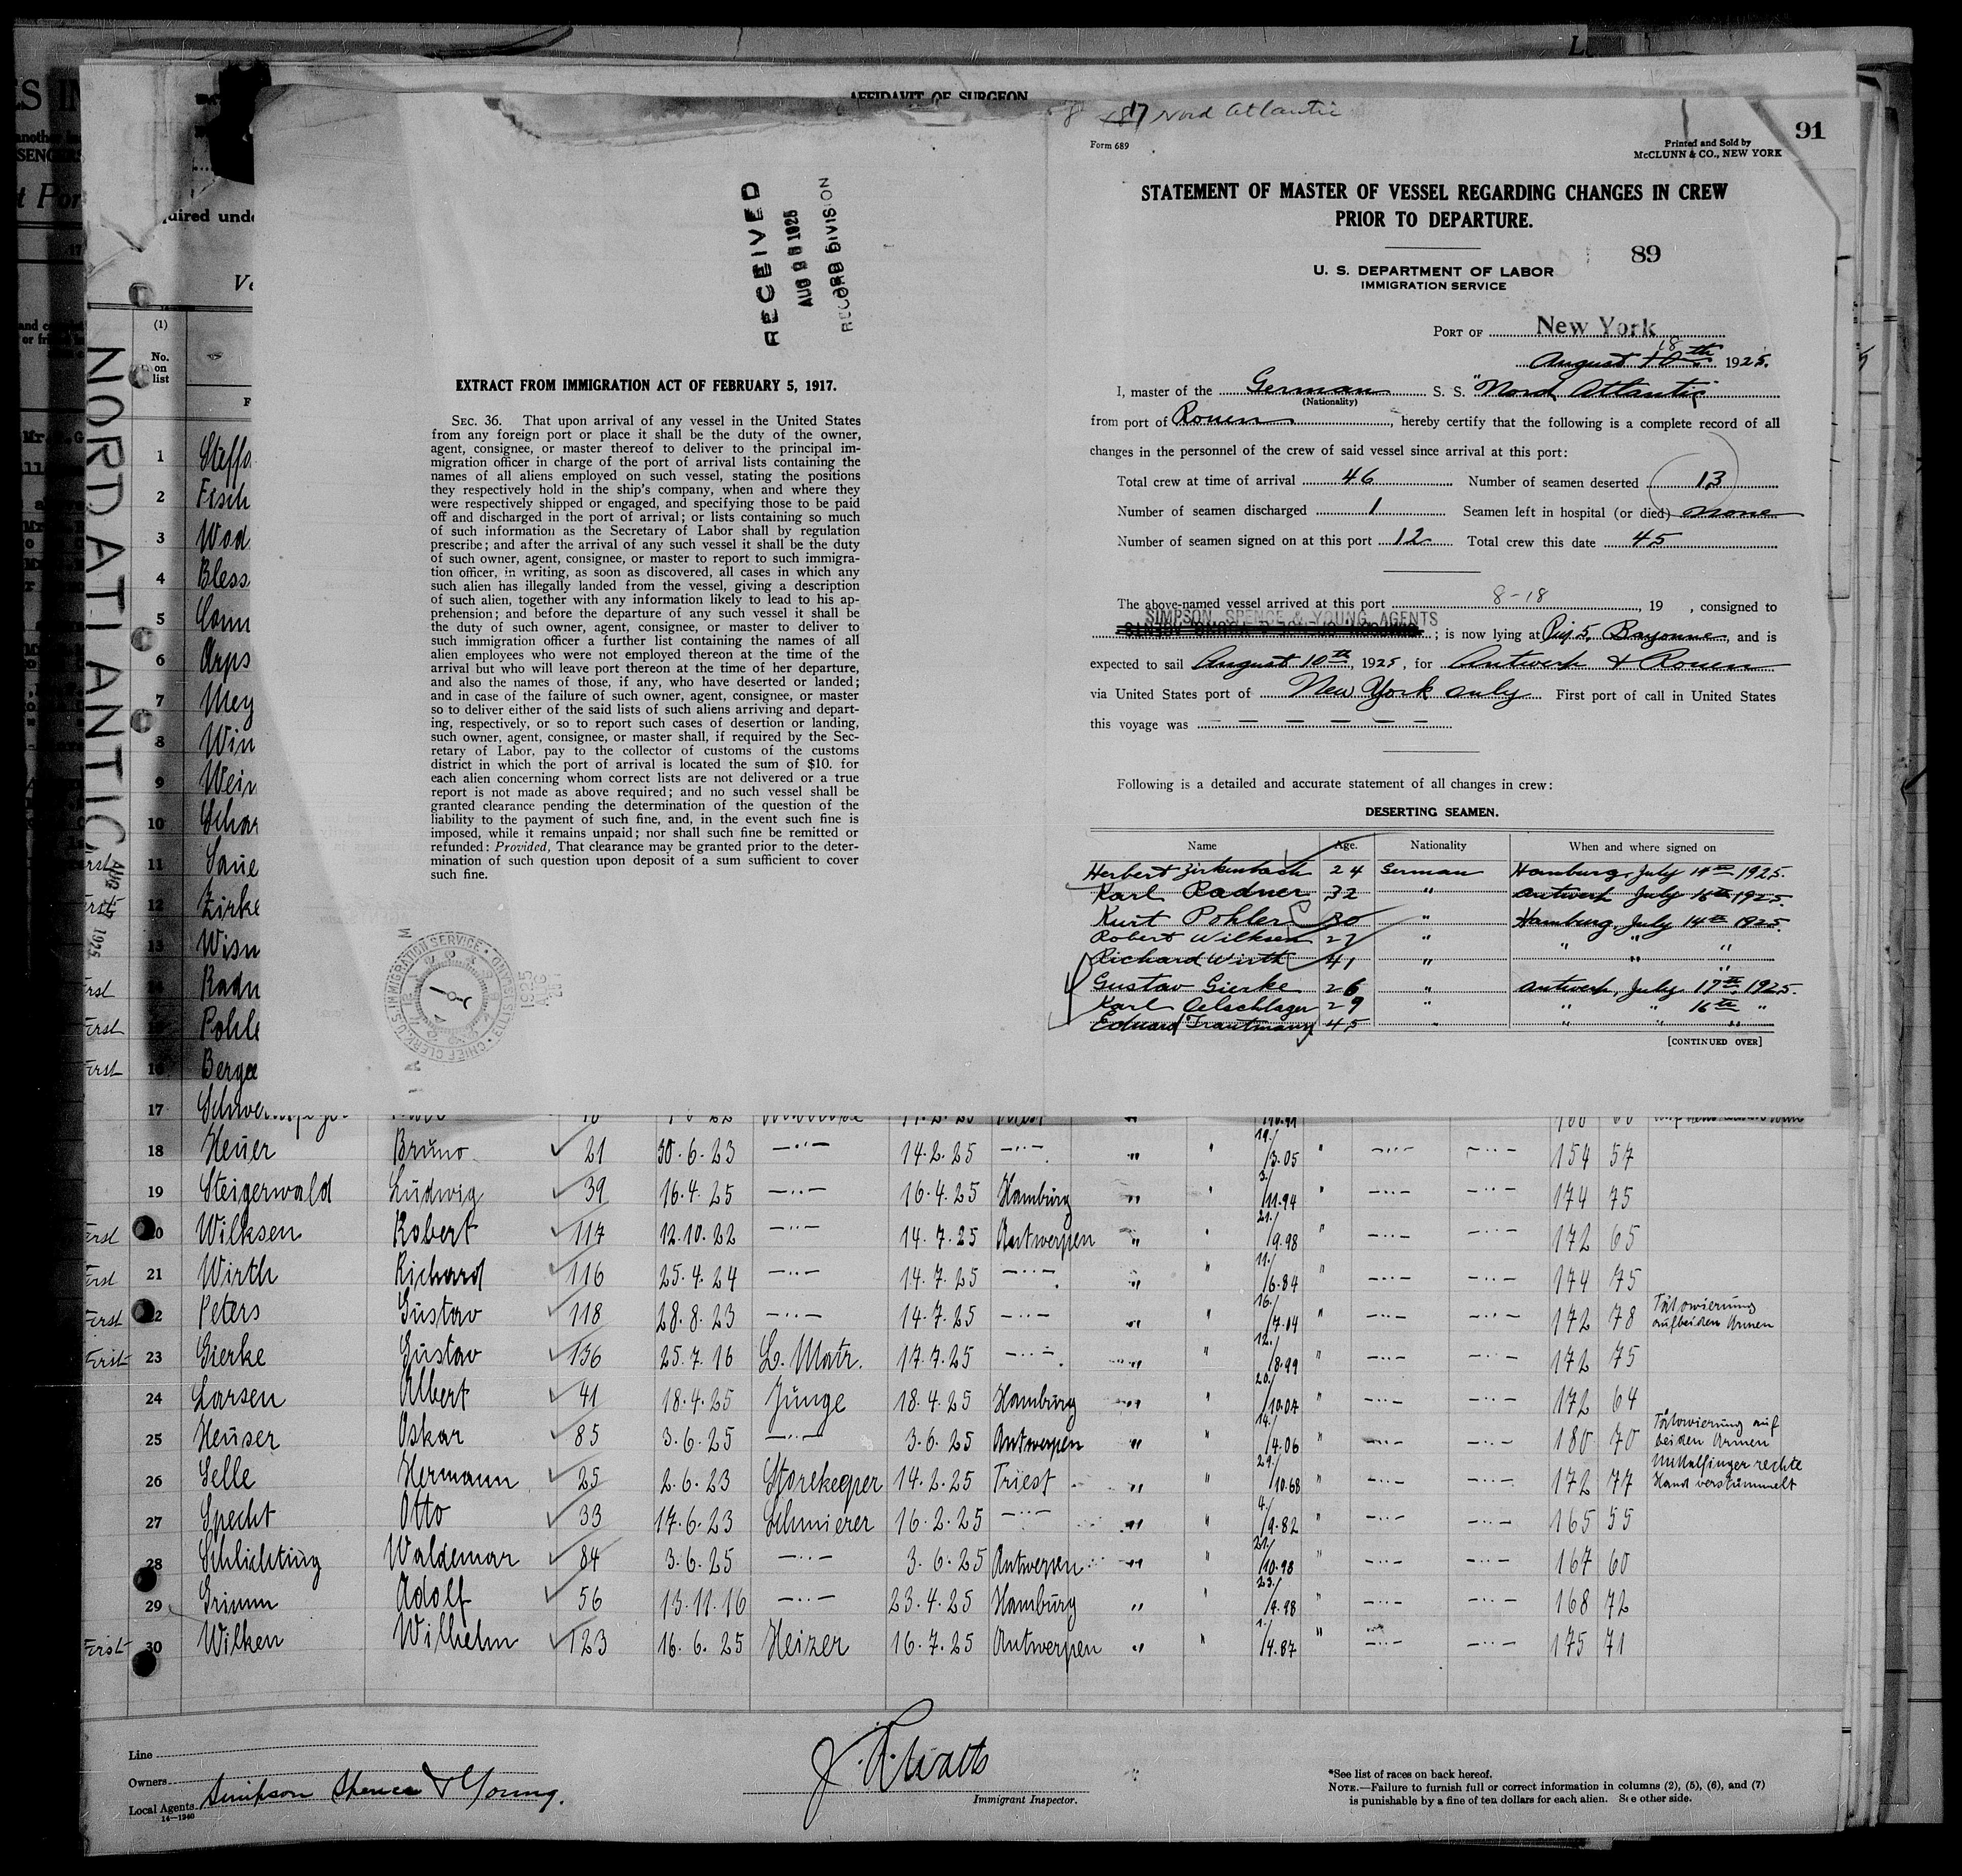 AFFIDAVIT OF SURGEON
NORD ATLANTIC
AUG 1925
RECEIVED
AUG 1925
RECORD DIVISION
EXTRACT FROM IMMIGRATION ACT OF FEBRUARY 5, 1917.
SEC. 36. That upon arrival of any vessel in the United States
from any foreign port or place it shall be the duty of the owner,
agent, consignee, or master thereof to deliver to the principal im-
migration officer in charge of the port of arrival lists containing the
names of all aliens employed on such vessel, stating the positions
they respectively hold in the ship's company, when and where they
were respectively shipped or engaged, and specifying those to be paid
off and discharged in the port of arrival; or lists containing so much
of such information as the Secretary of Labor shall by regulation
prescribe; and after the arrival of any such vessel it shall be the duty
of such owner, agent, consignee, or master to report to such immigra-
tion officer, in writing, as soon as discovered, all cases in which any
such alien has illegally landed from the vessel, giving a description
of such alien, together with any information likely to lead to his ap-
prehension; and before the departure of any such vessel it shall be
the duty of such owner, agent, consignee, or master to deliver to
such immigration officer a further list containing the names of all
alien employees who were not employed thereon at the time of the
arrival but who will leave port thereon at the time of her departure,
and also the names of those, if any, who have deserted or landed;
and in case of the failure of such owner, agent, consignee, or master
so to deliver either of the said lists of such aliens arriving and depart-
ing, respectively, or so to report such cases of desertion or landing,
such owner, agent, consignee, or master shall, if required by the Sec-
retary of Labor, pay to the collector of customs of the customs
district in which the port of arrival is located the sum of $10. for
each alien concerning whom correct lists are not delivered or a true
report is not made as above required; and no such vessel shall be
granted clearance pending the determination of the question of the
liability to the payment of such fine, and, in the event such fine is
imposed, while it remains unpaid; nor shall such fine be remitted or
refunded: Provided, That clearance may be granted prior to the deter-
mination of such question upon deposit of a sum sufficient to cover
such fine.
U.S. IMMIGRATION SERVICE • ELLIS ISLAND • CHIEF CLERK
817 Nord Atlantic
91
Form 689
Printed and Sold by
McCLUNN & CO., NEW YORK
STATEMENT OF MASTER OF VESSEL REGARDING CHANGES IN CREW
PRIOR TO DEPARTURE.
89
U. S. DEPARTMENT OF LABOR
IMMIGRATION SERVICE
PORT OF New York
18
August 10th 1925.
I, master of the German S. S. "Nord Atlantic"
(Nationality)
from port of Rouen, hereby certify that the following is a complete record of all
changes in the personnel of the crew of said vessel since arrival at this port:
Total crew at time of arrival 46 Number of seamen deserted 13
Number of seamen discharged 1 Seamen left in hospital (or died) none
Number of seamen signed on at this port 12 Total crew this date 45
The above-named vessel arrived at this port 8-18, 19 , consigned to
SIMPSON SPENCE & YOUNG AGENTS
; is now lying at Pier 5, Bayonne, and is
expected to sail August 10th, 1925, for Antwerp & Rouen
via United States port of New York only First port of call in United States
this voyage was — — — — — —
Following is a detailed and accurate statement of all changes in crew:
DESERTING SEAMEN.
Name Age. Nationality When and where signed on
Herbert Zirkenbach 24 German Hamburg, July 14th 1925.
Karl Radner 32 " Antwerp July 16th 1925.
Kurt Pohler 30 " Hamburg, July 14th 1925.
Robert Wilksen 27 " " " "
Richard Wirth 41 " " " "
Gustav Gierke 26 " Antwerp, July 17th 1925.
Karl Oelschlager 29 " " 16th "
Eduard Trautmann 45 " " " "
[CONTINUED OVER]
(1)
No.
on
list
1 Steffo
2 Fisch
3 Wod
4 Bless
5 Conn
6 Arps
7 Mey
8 Win
9 Wein
10 Schar
11 Saue
12 Zirke
13 Wisn
14 Radn
15 Pohle
16 Berge
17
18 Heuer Bruno 21 30.6.23 —"— 14.2.25 —"— " " 19./3.05 " —"— —"— 154 57
19 Steigerwald Ludwig 39 16.4.25 —"— 16.4.25 Hamburg " " 3./11.94 " —"— —"— 174 75
20 Wilksen Robert 117 12.10.22 —"— 14.7.25 Antwerpen " " 21./9.98 " —"— —"— 172 65
21 Wirth Richard 116 25.4.24 —"— 14.7.25 —"— " " 11./6.84 " —"— —"— 174 75
22 Peters Gustav 118 28.8.23 —"— 14.7.25 —"— " " 16./7.04 " —"— —"— 172 78 Tätowierung auf beiden Armen
23 Gierke Gustav 136 25.7.16 L. Matr. 17.7.25 —"— " " 12./8.99 " —"— —"— 172 75
24 Larsen Albert 41 18.4.25 Junge 18.4.25 Hamburg " " 20./10.07 " —"— —"— 172 64
25 Heuser Oskar 85 3.6.25 —"— 3.6.25 Antwerpen " " 14./4.06 " —"— —"— 180 70 Tätowierung auf beiden Armen
26 Selle Hermann 25 2.6.23 Storekeeper 14.2.25 Triest " " 29./10.68 " —"— —"— 172 77 Mittelfinger rechte Hand verstümmelt
27 Specht Otto 33 17.6.23 Schmierer 16.2.25 —"— " " 4./9.82 " —"— —"— 165 55
28 Schlichting Waldemar 84 3.6.25 —"— 3.6.25 Antwerpen " " 21./10.98 " —"— —"— 167 60
29 Grimm Adolf 56 13.11.16 —"— 23.4.25 Hamburg " " 23./9.98 " —"— —"— 168 72
30 Wilken Wilhelm 123 16.6.25 Heizer 16.7.25 Antwerpen " " 1./4.87 " —"— —"— 175 71
Line
Owners
Local Agents Simpson Spence & Young.
14—1240
Immigrant Inspector.
*See list of races on back hereof.
NOTE.—Failure to furnish full or correct information in columns (2), (5), (6), and (7)
is punishable by a fine of ten dollars for each alien. See other side.